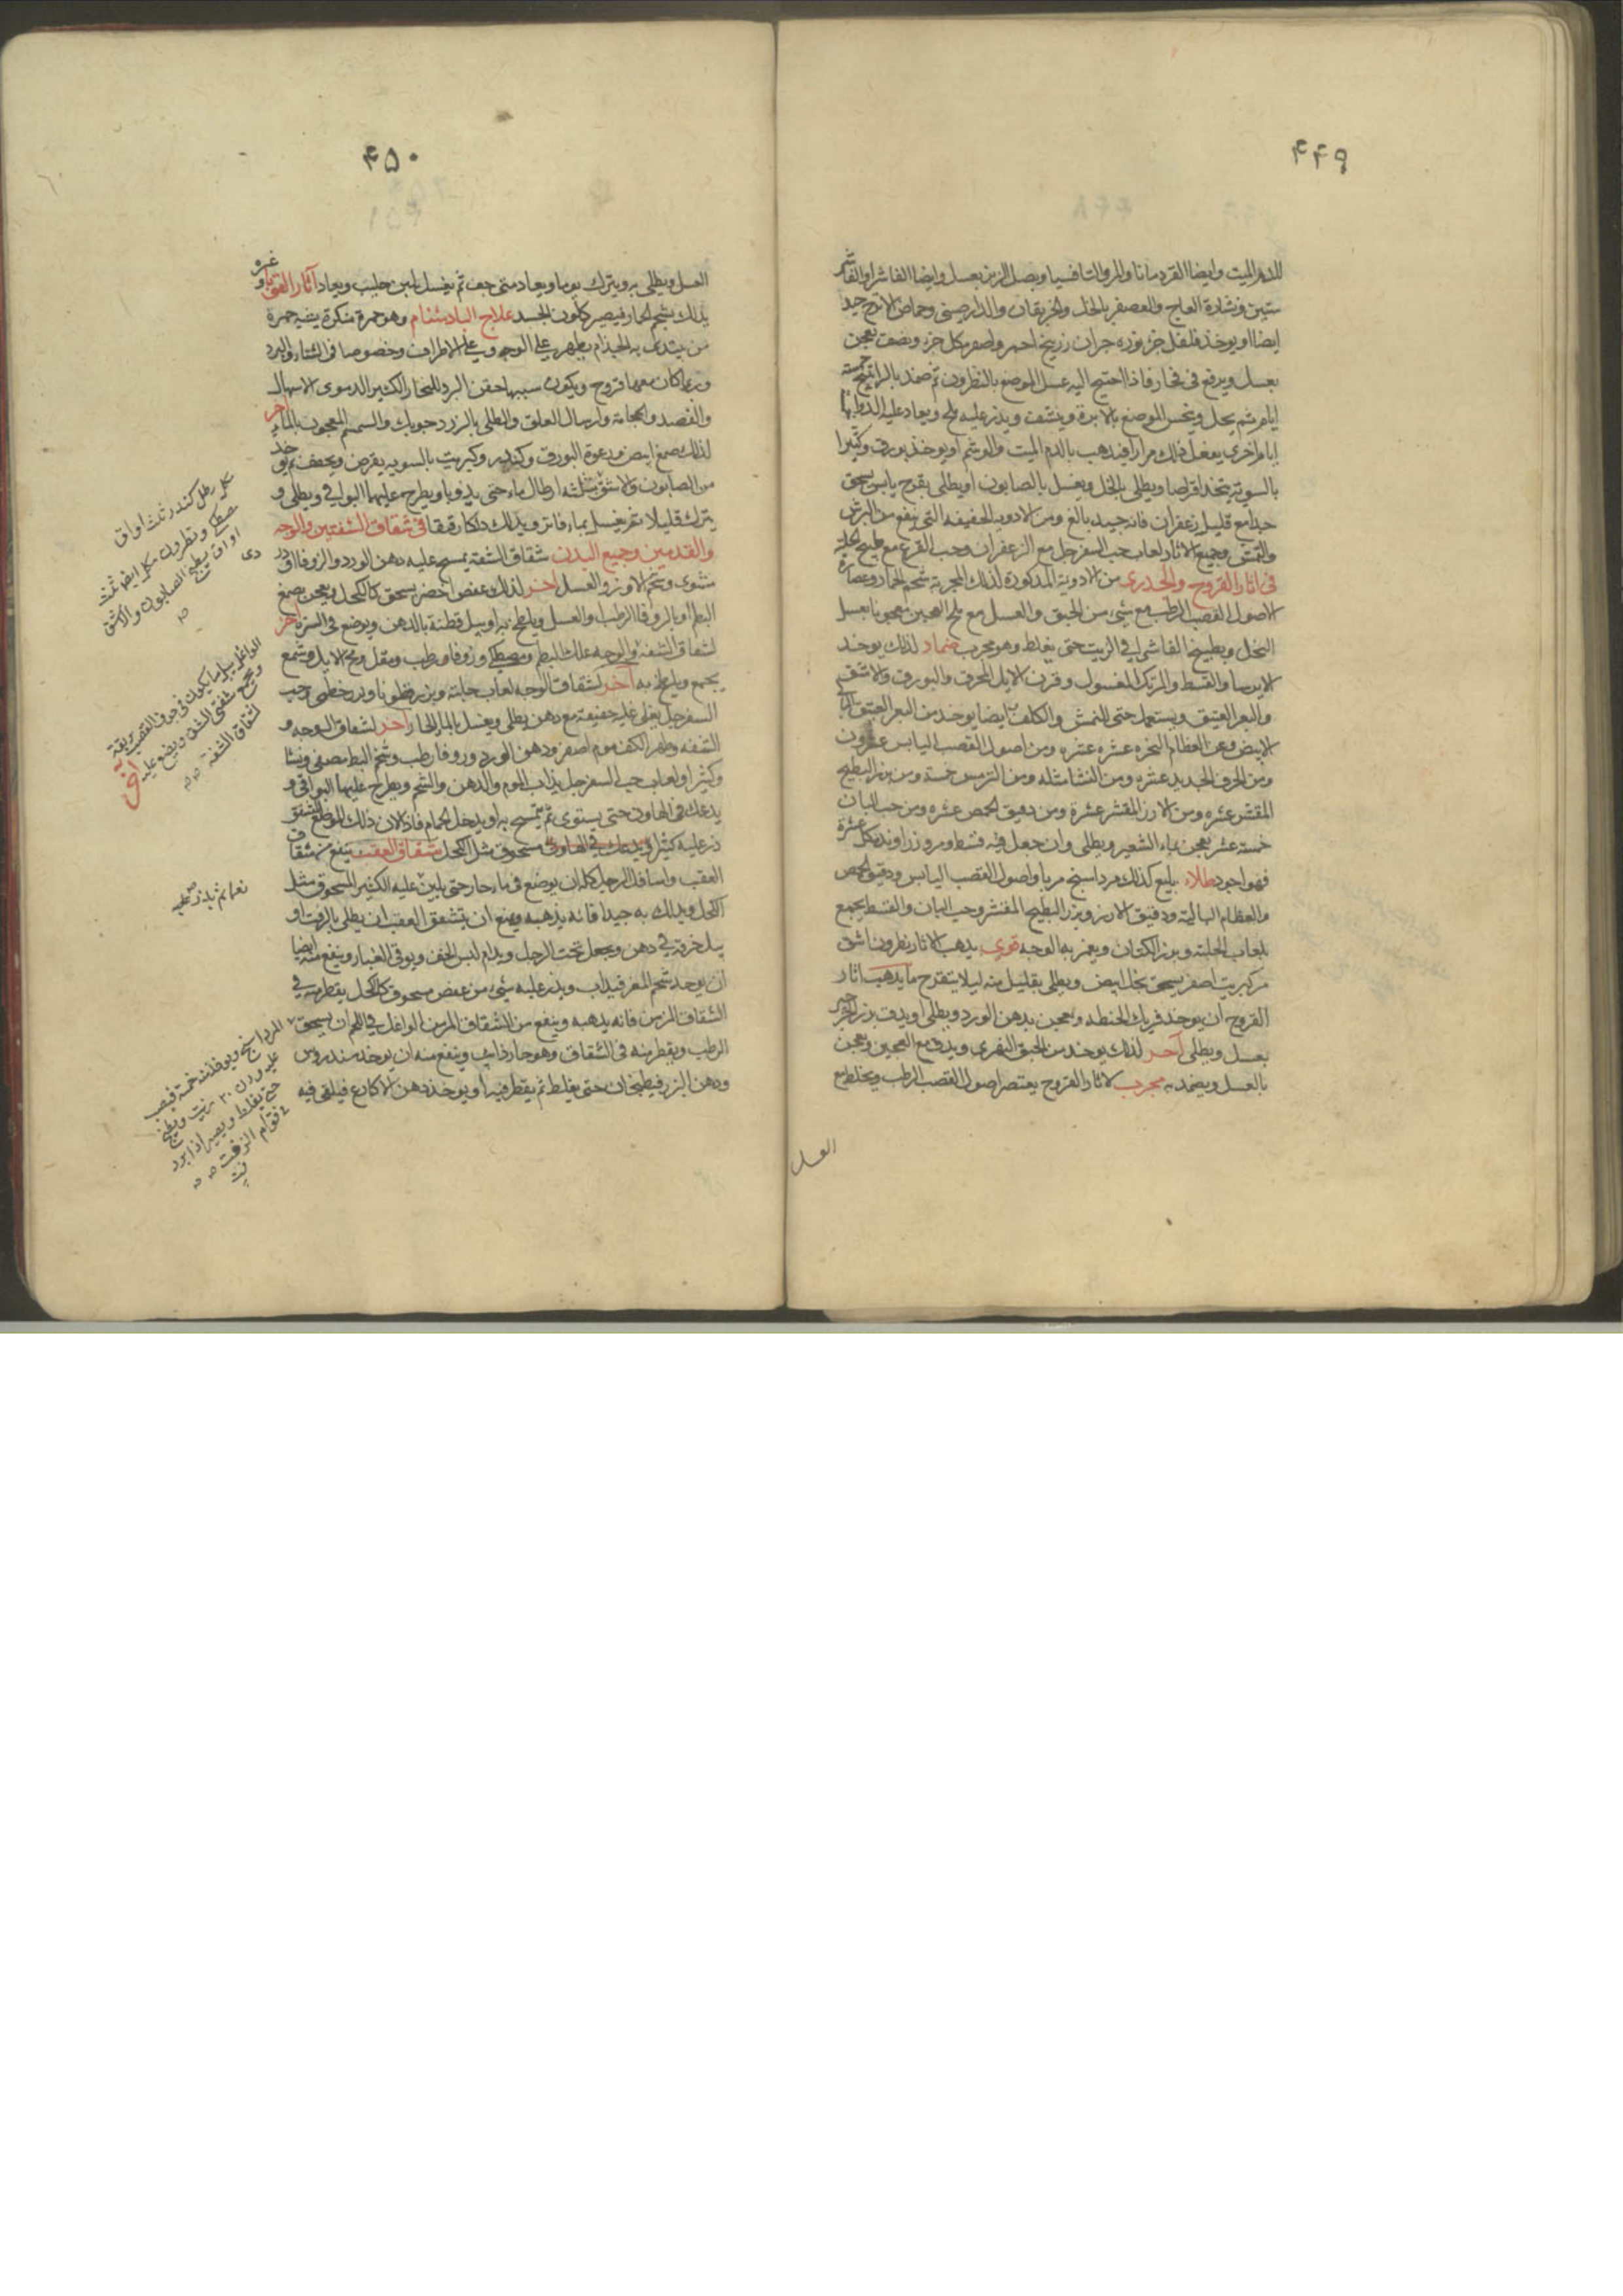 ۴۴۹
للدم الميت وايضا القردمانا والمر والتافسيا وبصل الزيز بعسل وايضا الفاشرا والفاشر
ستين ونشارة العاج والعصفر بالخل والخربقان والدارصيني وحماض الاترج جيد
ايضا او يوخذ فلفل جز نوره جزان زرنيخ احمر واصفر من كل جزء ونصف يعجن
بعسل ويرفع في فخار فاذا احتيج اليه غسل الموضع بالنطرون ثم ضمد بالراتينج خمسة
ايام ثم يحل وينخس الموضع بالابرة وينشف ويذر عليه ملح ويعاد عليه الدوا
اياما اخرى يفعل ذلك مرارا فيذهب بالدم الميت والوشم او يوخذ بورق وكثيرا
بالسوية يتخذ اقراصا ويطلى بالخل ويغسل بالصابون او يطلى بقرح يابس يسحق
جيدا مع قليل زعفران فانه جيد بالغ ومن الادوية الخفيفة التي ينفع من البرش
والنمش وجميع الاثار لعاب حب السفرجل مع الزعفران وحب القرع مع طبيخ الحلبة
في اثار القروح والجدري من الادوية المذكورة لذلك المجربة شحم الحمار وعصارة
لاصول القصب الرطب مع شي من الحبق والعسل مع ملح العجين معجونا بعسل
النحل وطبيخ الفاشرا في الزيت حتى يغلظ وهو مجرب ضماد لذلك يوخذ
الايرسا والقسط والمرتك المغسول وقرن الايل المحرق والبورق والاشق
والبعر العتيق ويستعمل حتى النمش والكلف ايضا يوخذ من البعر العتيق
الابيض ومن العظام النخره عشره عشره ومن اصول القصب اليابس عشرون
ومن الخزف الجديد عشره ومن النشا مثله ومن الترمس خمسة ومن بزر البطيخ
المقشر عشره ومن الارز المقشر عشرة ومن دقيق الحمص عشره ومن حب البان
خمسة عشر يعجن بماء الشعير ويطلى وان جعل فيه قسط ومر وزراوند من كل عشرة
فهو اجود طلاء بليغ كذلك مرداسنج مربا واصول القصب اليابس ودقيق الحمص
والعظام البالية ودقيق الارز وبزر البطيخ المقشر وحب البان والقسط يجمع
بلعاب الحلبة وبزر الكتان ويغمر به الوجه قوي يذهب الاثار نطرون اشق
كبريت اصفر يسحق بخل ابيض ويطلى بقليل منه ليلا يتقرح ما يذهب اثار
القروح ان يوخذ فريك الحنطة ويعجن بدهن الورد ويطلى او يدق بزر الجزر
بعسل ويطلى آخر لذلك يوخذ من الحبق النهري ويدق مع العجين ويعجن
بالعسل ويضمد به مجرب لاثار القروح يعتصر اصول القصب الرطب ويخلط مع
العسل
۴۵۰
العسل ويطلى به ويترك يوما ويعاد متى جف ثم يغسل بلبن حليب ويعاد آثار القوبا وغيره
يدلك بشحم الحمار فيصير كلون الجسد علاج البادشنام وهو حمرة منكرة يشبه حمرة
من يبتدى به الجذام يظهر على الوجه وعلى الاطراف وخصوصا في الشتاء والبرد
وربما كان معها قروح ويكون سببها حقن البرد للبخار الكثير الدموي الاسهال
والفصد والحجامة وارسال العلق والطلى بالزرد جوبك والسمسم المعجون بالماء آخر
لذلك صمغ ابيض ورغوة البورق وكندر وكبريت بالسويه يقرص ويجفف ثم يوخذ
من الصابون والاشق مثلثه ارطال ماء حتى يذوبا ويطرح عليهما البواقي ويطلى و
يترك قليلا ثم يغسل بماء فاتر ويدلك دلكا رقيقا في شقاق الشفتين والوجه
والقدمين وجميع البدن شقاق الشفة يمسح عليه دهن الورد والزوفا او
مشوى وشحم الاوز والعسل آخر لذلك وعفص اخضر يسحق كالكحل ويعجن بصمغ
البطم او بالزوفا الرطب والعسل ويلطخ به او يبل قطنة بالدهن ويوضع في السرة آخر
لشقاق الشفة والوجه علك البطم ومصطكي وزوفا رطب ومقل ومخ الايل وشمع
يجمع ويلطخ به آخر لشقاق الوجه لعاب حلبة وبزر قطونا وورد خطمي وحب
السفرجل يغلى عليه خفيفة مع دهن يطلى ويغسل بالماء الحار آخر لشقاق الوجه و
الشفه وظهر الكف موم اصفر ودهن الورد وزوفا رطب وشحم البط مصفى ونشا
وكثيرا ولعاب حب السفرجل يذاب الموم والدهن والشحم ويطرح عليها البواقي و
يدعك في الهاون حتى يستوى ثم يمسح به او يدخل الحمام فاذا لان ذلك الموضع المتشقق
ذر عليه كثيرا مسحوق مثل الكحل شقاق العقب ينفع من شقاق
العقب واسافل الرجل كله ان يوضع في ماء حار حتى يلين عليه الكثير المسحوق مثل
الكحل ويدلك به جيدا فانه يذهبه ويمنع ان يتشقق العقب ان يطلى بالزفت او
يبل خرقة في دهن ويجعل تحت الرجل ويدام لبس الخف ويوقى الغبار وينفع منه ايضا
ان يوخذ شحم المعز فيذاب ويذر عليه شيء من عفص مسحوق كالكحل يقطر منه في
الشقاق المزمن فانه يذهبه وينفع من الشقاق المزمن الواغل في اللحم ان يسحق
الرطب ويقطر منه في الشقاق وهو حار ذايب وينفع منه ان يوخذ سندروس
ودهن البزر فيطبخان حتى يغلظ ثم يقطر فيه او يوخذ دهن الاكارع فيلقى فيه
رطل كندر ثلث اواق
مصطكي ونطرون من كل
اواق يطبخ الصابون والاشق
ويجمع شفتي الشق ويوضع عليه
لشقاق الشفة
نعما ثم يذر عليه
حتى يغلظ ويصير اذا برد
في قوام الزفت